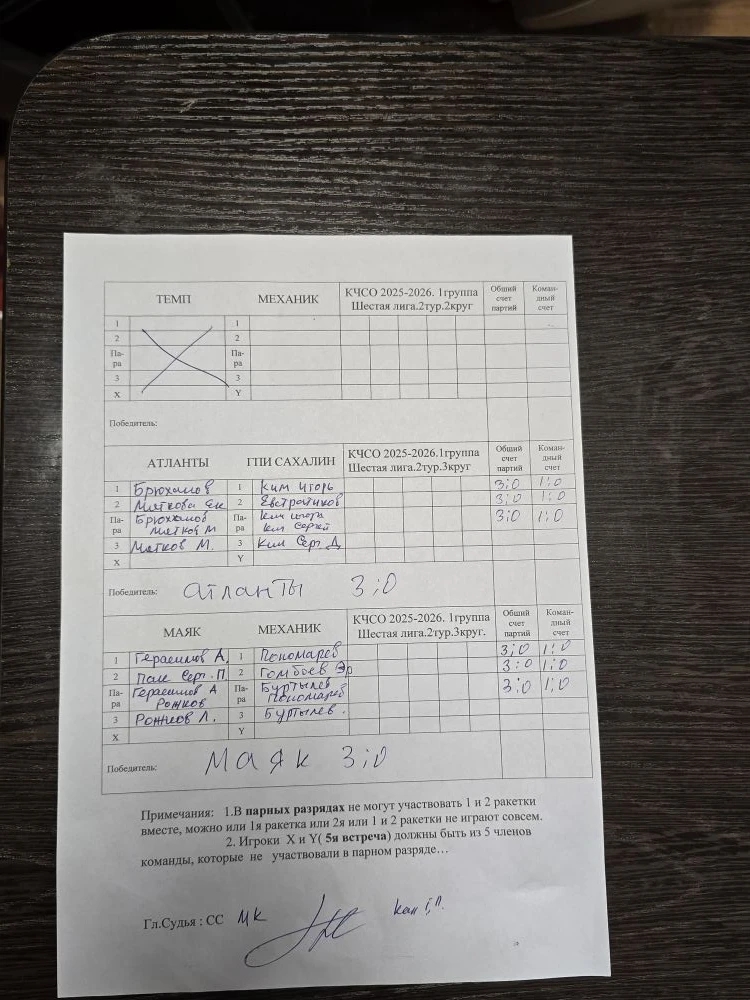 ТЕМП МЕХАНИК КЧСО 2025-2026. 1группа Общий Коман-
Шестая лига.2тур.2круг счет дный
партий счет
1 1
2 2
Па- Па-
ра ра
3 3
X Y
Победитель:
АТЛАНТЫ ГПИ САХАЛИН КЧСО 2025-2026.1группа Общий Коман-
Шестая лига.2тур.3круг счет дный
партий счет
1 Брюханов 1 Ким Игорь 3:0 1:0
2 Мяткова Ек 2 Евстратиков 3:0 1:0
Па- Брюханов Па- Ким Игорь 3:0 1:0
ра Мятков М ра Ким Сергей
3 Мятков М. 3 Ким Серг. Д
X Y
Победитель: Атланты 3:0
МАЯК МЕХАНИК КЧСО 2025-2026. 1группа Общий Коман-
Шестая лига.2тур.3круг. счет дный
партий счет
1 Герасимов А. 1 Пономарев 3:0 1:0
2 Пак Серг. П. 2 Гомбоев Эр 3:0 1:0
Па- Герасимов А Па- Буртылев 3:0 1:0
ра Рожков ра Пономарев
3 Рожков Л. 3 Буртылев.
X Y
Победитель: Маяк 3:0
Примечания: 1.В парных разрядах не могут участвовать 1 и 2 ракетки
вместе, можно или 1я ракетка или 2я или 1 и 2 ракетки не играют совсем.
2. Игроки X и Y( 5я встреча) должны быть из 5 членов
команды, которые не участвовали в парном разряде…
Гл.Судья : СС МК